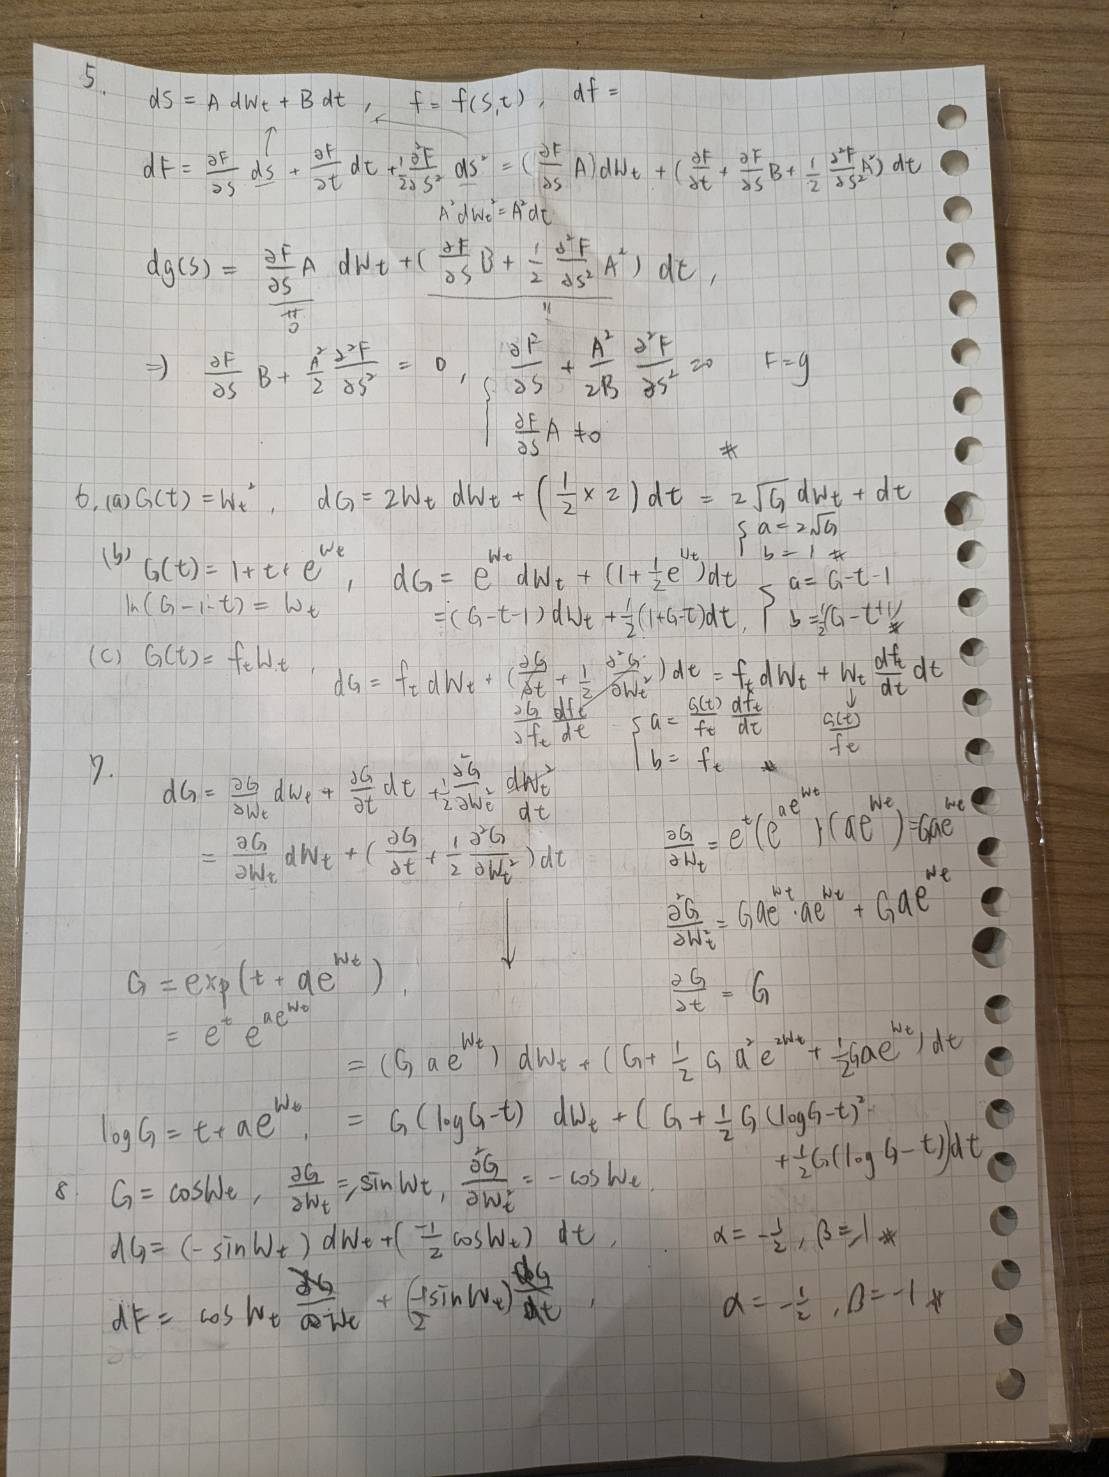 5.
dS = A dWt + B dt , f = f(S,t) , df =
dF = ∂F/∂S dS + ∂F/∂t dt + 1/2 ∂²F/∂S² dS² = (∂F/∂S A) dWt + (∂F/∂t + ∂F/∂S B + 1/2 ∂²F/∂S² A²) dt
A² dWt² = A² dt
dg(S) = ∂F/∂S A dWt + (∂F/∂S B + 1/2 ∂²F/∂S² A²) dt ,
≠ 0
⇒) ∂F/∂S B + A²/2 ∂²F/∂S² = 0 , { ∂F/∂S + A²/2B ∂²F/∂S² = 0 F = g
∂F/∂S A ≠ 0
*
6. (a) G(t) = Wt² , dG = 2Wt dWt + (1/2 × 2) dt = 2√G dWt + dt
{ a = 2√G
b = 1 *
(b) G(t) = 1 + t + e^Wt , dG = e^Wt dWt + (1 + 1/2 e^Wt) dt { a = G-t-1
ln(G-1-t) = Wt = (G-t-1) dWt + 1/2 (1+G-t) dt , b = 1/2 (G-t+1) *
(c) G(t) = ft Wt , dG = ft dWt + (∂G/∂t + 1/2 ∂²G/∂Wt²) dt = ft dWt + Wt dft/dt dt
∂G/∂ft dft/dt { a = G(t)/ft dft/dt G(t)/ft
b = ft *
7.
dG = ∂G/∂Wt dWt + ∂G/∂t dt + 1/2 ∂²G/∂Wt² dWt²
dt
= ∂G/∂Wt dWt + (∂G/∂t + 1/2 ∂²G/∂Wt²) dt
∂G/∂Wt = e^t (e^(ae^Wt)) (ae^Wt) = Gae^Wt
∂²G/∂Wt² = Gae^Wt · ae^Wt + Gae^Wt
G = exp(t + ae^Wt) ,
∂G/∂t = G
= e^t e^(ae^Wt)
= (G ae^Wt) dWt + (G + 1/2 G a² e^2Wt + 1/2 Gae^Wt) dt
log G = t + ae^Wt , = G (log G - t) dWt + (G + 1/2 G (log G - t)²
+ 1/2 G (log G - t)) dt
8. G = cos Wt , ∂G/∂Wt = - sin Wt , ∂²G/∂Wt² = - cos Wt .
dG = (- sin Wt) dWt + (-1/2 cos Wt) dt , α = -1/2 , β = -1 *
dF = cos Wt + (-1/2 sin Wt) , α = -1/2 , β = -1 *